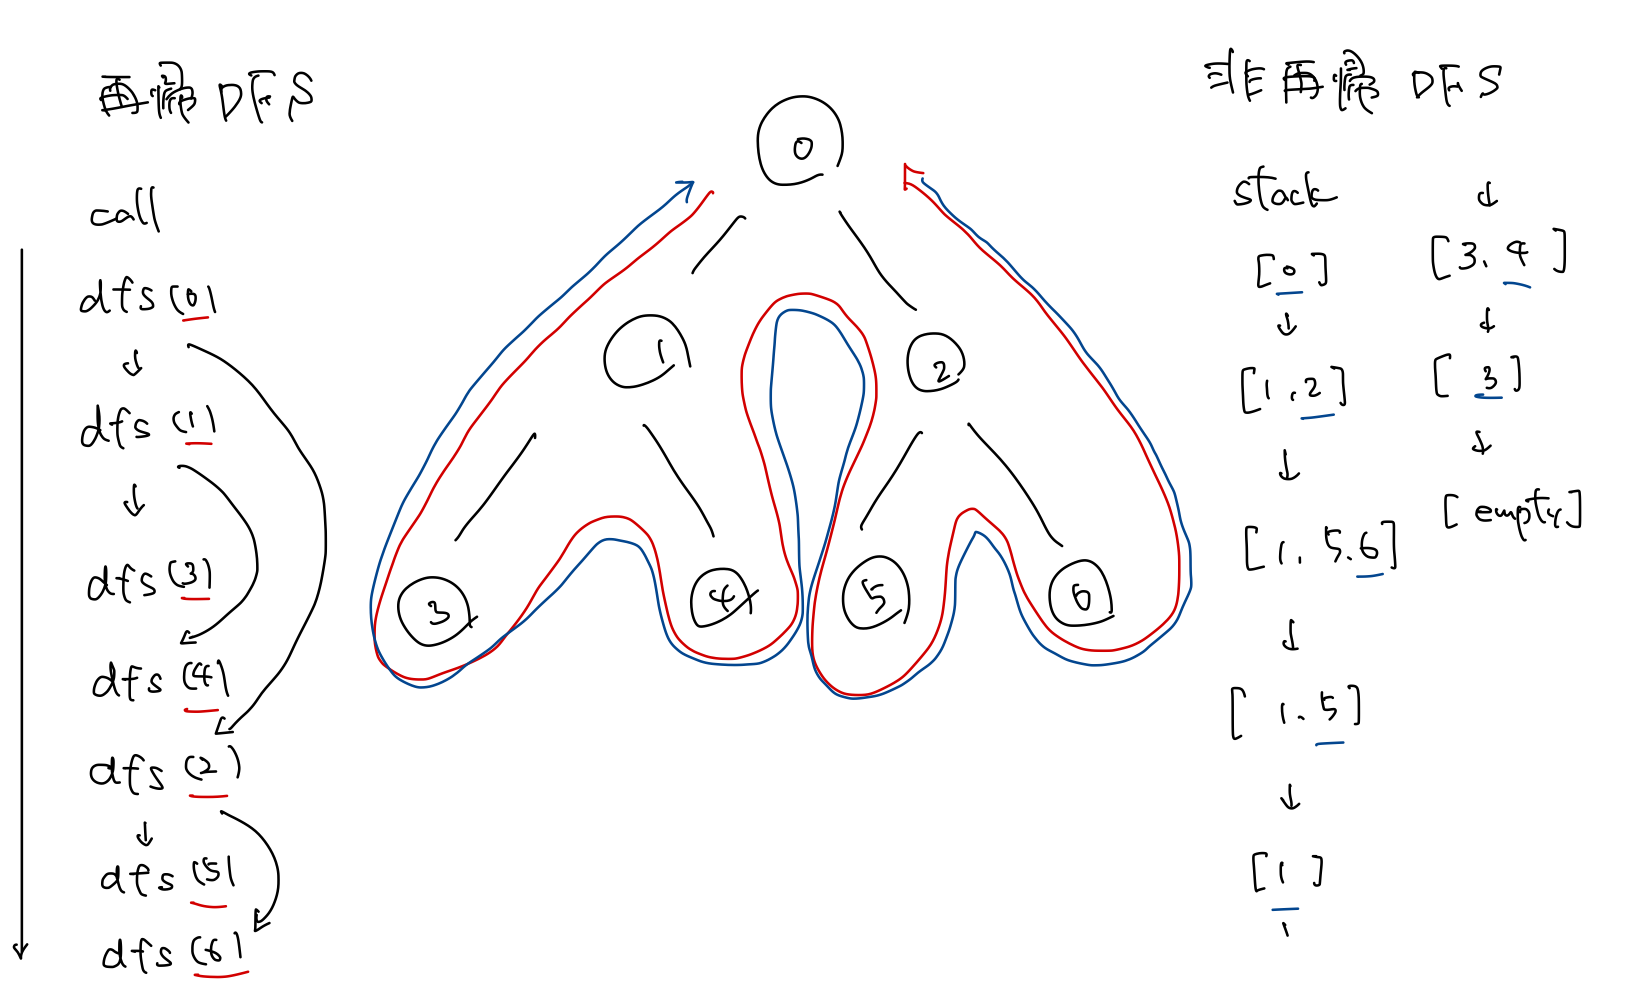 再帰 DFS
call
dfs (0)
↓
dfs (1)
↓
dfs (3)
dfs (4)
dfs (2)
↓
dfs (5)
dfs (6)
0
1
2
3
4
5
6
非再帰 DFS
stack
[0]
↓
[1,2]
↓
[1. 5.6]
↓
[1. 5]
↓
[1]
↓
[3. 4]
↓
[3]
↓
[empty]